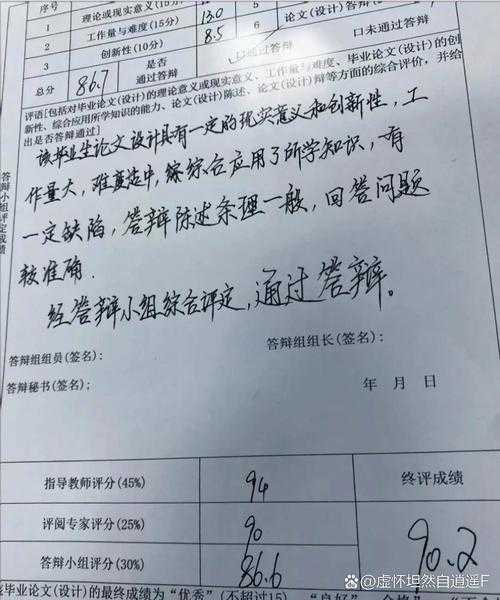 序号 理论或现实意义(15分) 13.0 5
1 工作量与难度(15分) 8.5 6 论文(设计)答辩
2 创新性(10分)
3 是否通过答辩 通过答辩 口未通过答辩
总分 86.7
评语[包括对毕业论文(设计)的理论意义或现实意义、工作量与难度、毕业论文(设计)的创
新性、综合应用所学知识的能力、论文(设计)陈述、论文(设计)答辩等方面的综合评价,并给
出是否答辩通过]
答辩小组评定成绩
该毕业生论文设计具有一定的现实意义和创新性,工
作量大,难度适中,综综合应用了所学知识,有
一定缺陷,答辩陈述条理一般,回答问题
较准确.
经答辩小组综合评定,通过答辩。
答辩组组员(签名):
答辩组组长(签名):
答辩秘书(签名):
年 月 日
指导教师评分(45%) 94 终评成绩
评阅专家评分(25%) 90
答辩小组评分(30%) 86.6 90.2
毕业论文(设计)的最终成绩为“优秀”(不超过15
“良好”
@虚怀坦然自逍遥F